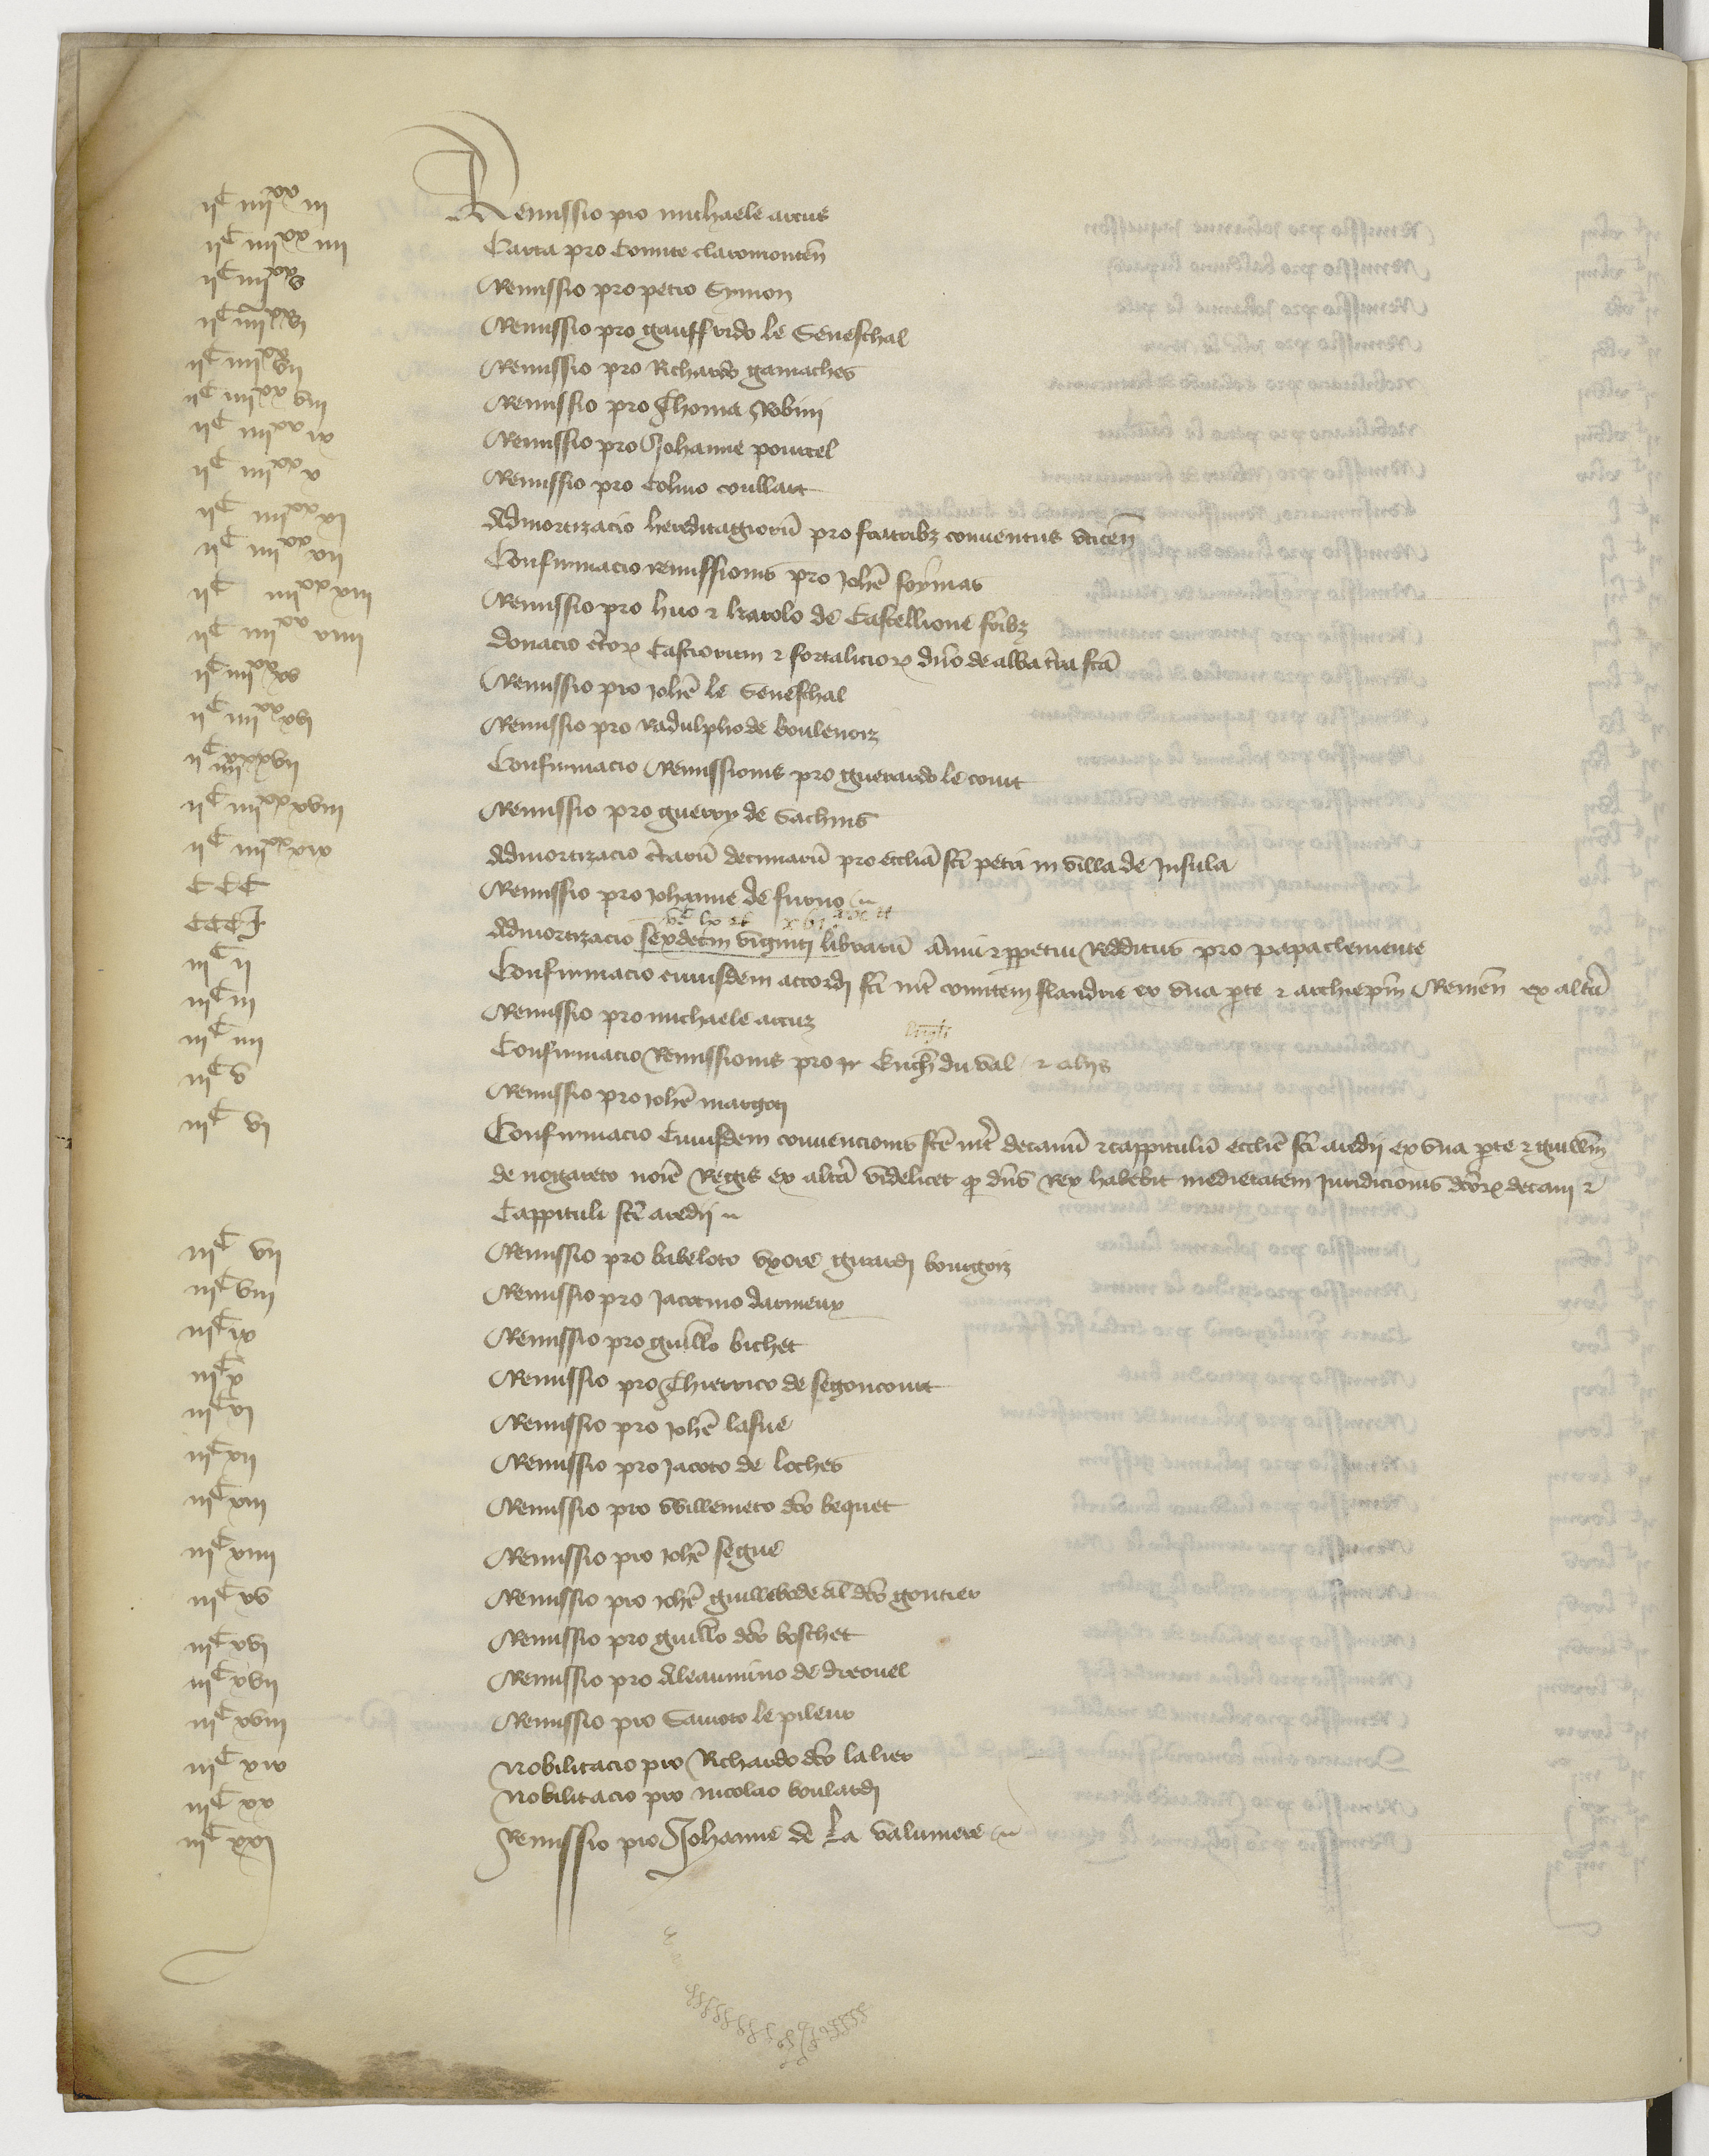 ii^C iiii^xx iii Remissio pro michaele arcus
ii^C iiii^xx iiii Carta pro Comite claromonteñ
ii^C iiii^xx v Remissio pro petro Symon
ii^C iiii^xx vi Remissio pro gauffrido le Seneschal
ii^C iiii^xx vii Remissio pro Richardo gamaches
ii^C iiii^xx viii Remissio pro Thoma Robini
ii^C iiii^xx ix Remissio pro Johanne pourcel
ii^C iiii^xx x Remissio pro Colino coullart
ii^C iiii^xx xi Admortizacio hereditagiorũ pro fratribz conventus
ii^C iiii^xx xii Confirmacio remissionis pro Johẽ soymas
ii^C iiii^xx xiii Remissio pro huo ⁊ karolo de Castellione fribz
ii^C iiii^xx xiiii Donacio Castrorum ⁊ fortaliciorꝝ dño de alba
ii^C iiii^xx xv Remissio pro Johẽ le Seneschal
ii^C iiii^xx xvi Remissio pro Radulpho de boulenoiz
ii^C iiii^xx xvii Confirmacio Remissionis pro guerardo le court
ii^C iiii^xx xviii Remissio pro guerry de Sachins
ii^C iiii^xx xix Admortizacio c̃tarũ decimarũ pro eccliã sci petri in villa de Insula
CCC Remissio pro Johanne de furno
CCCI Admortizacio sexdecim viginti librarũ Annui ⁊ ꝑpetui Redditus pro papa clemente
iii^C ii Confirmacio cuiusdem accordi fci int̃ comitem flandrie ex vna ꝑte ⁊ archiepm̃ Remeñ ex altã
iii^C iii Remissio pro michaele arcuz
iii^C iiii Confirmacio Remissionis pro du val ⁊ aliis
iii^C v Remissio pro Johẽ margot
iii^C vi Confirmacio Cuiusdem convencionis fcẽ int̃ decanũ ⁊ cappitulũ ecclie sci aredii ex vna ꝑte ⁊ guillm̃
de nogareto noiẽ Regis ex altã videlicet ꝙ dñs Rex habebit medietatem Juridicionis dcõrꝝ decani ⁊
Cappituli sci aredii
iii^C vii Remissio pro babeloto vxore girardi bourgoiz
iii^C viii Remissio pro Jacomino darmeux
iii^C ix Remissio pro guillo bichet
iii^C x Remissio pro Thierrico de segoncourt
iii^C xi Remissio pro Johẽ lasue
iii^C xii Remissio pro Jacoto de loches
iii^C xiii Remissio pro Willemeto dc̃o bequet
iii^C xiiii Remissio pro Johẽ segue
iii^C xv Remissio pro Johẽ guillebode al̃ dc̃o gontier
iii^C xvi Remissio pro guillo dc̃o boschet
iii^C xvii Remissio pro Aleaumino de dreouel
iii^C xviii Remissio pro le pileur
iii^C xix Nobilitacio pro Richardo dc̃o lalier
iii^C xx Nobilitacio pro nicolao boulardi
iii^C xxi Remissio pro Johanne de La valumere